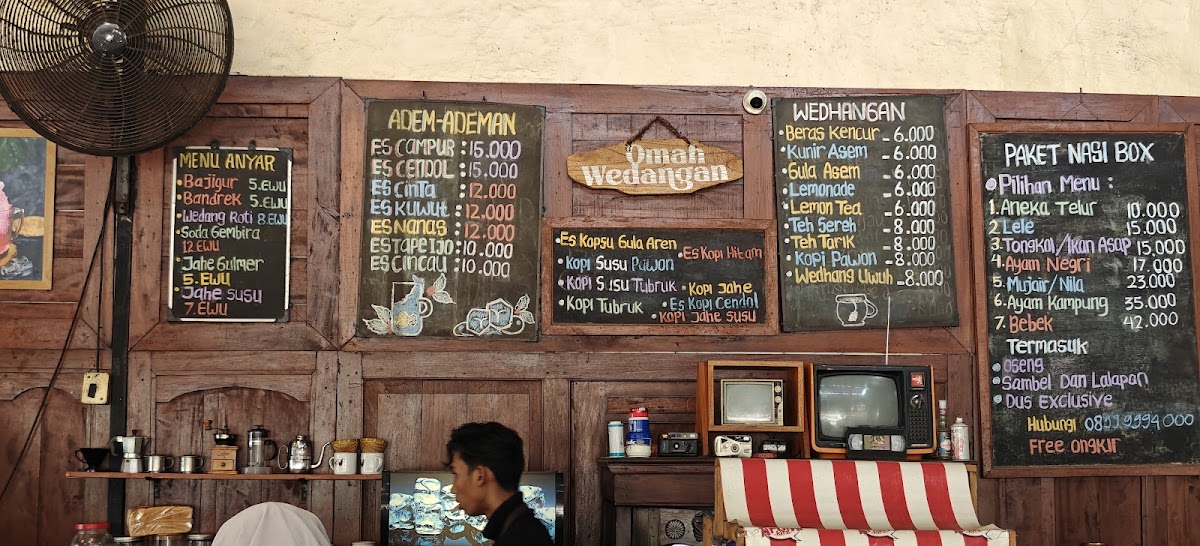 MENU ANYAR
• Bajigur 5.EWU
• Bandrek 5.EWU
• Wedang Roti 8.EWU
• Soda Gembira
12 EWU
• Jahe Gulmer
5.EWU
• Jahe SUSU
7.EWU
ADEM-ADEMAN
ES CAMPUR : 15.000
ES CENDOL : 15.000
ES Cinta : 12.000
ES KUWUT : 12.000
ES NANAS : 12.000
ES TAPE IJO : 10.000
ES CINCAU : 10.000
Omah
Wedangan
• Es Kapsu Gula Aren
• Es Kopi Hitam
• Kopi Susu Pawon
• Kopi Susu Tubruk
• Kopi Jahe
• Kopi Tubruk
• Es Kopi Cendol
• Kopi Jahe Susu
WEDHANGAN
• Beras Kencur - 6.000
• Kunir Asem - 6.000
• Gula Asem - 6.000
• Lemonade - 6.000
• Lemon Tea - 6.000
• Teh Sereh - 8.000
• Teh Tarik - 8.000
• Kopi Pawon - 8.000
• Wedhang Uwuh - 8.000
PAKET NASI BOX
• Pilihan Menu :
1. Aneka Telur 10.000
2. Lele 15.000
3. Tongkol/Ikan Asap 15.000
4. Ayam Negri 17.000
5. Mujair/Nila 23.000
6. Ayam Kampung 35.000
7. Bebek 42.000
Termasuk
• Oseng
• Sambel Dan Lalapan
• Dus Exclusive
Hubungi
Free ongkir